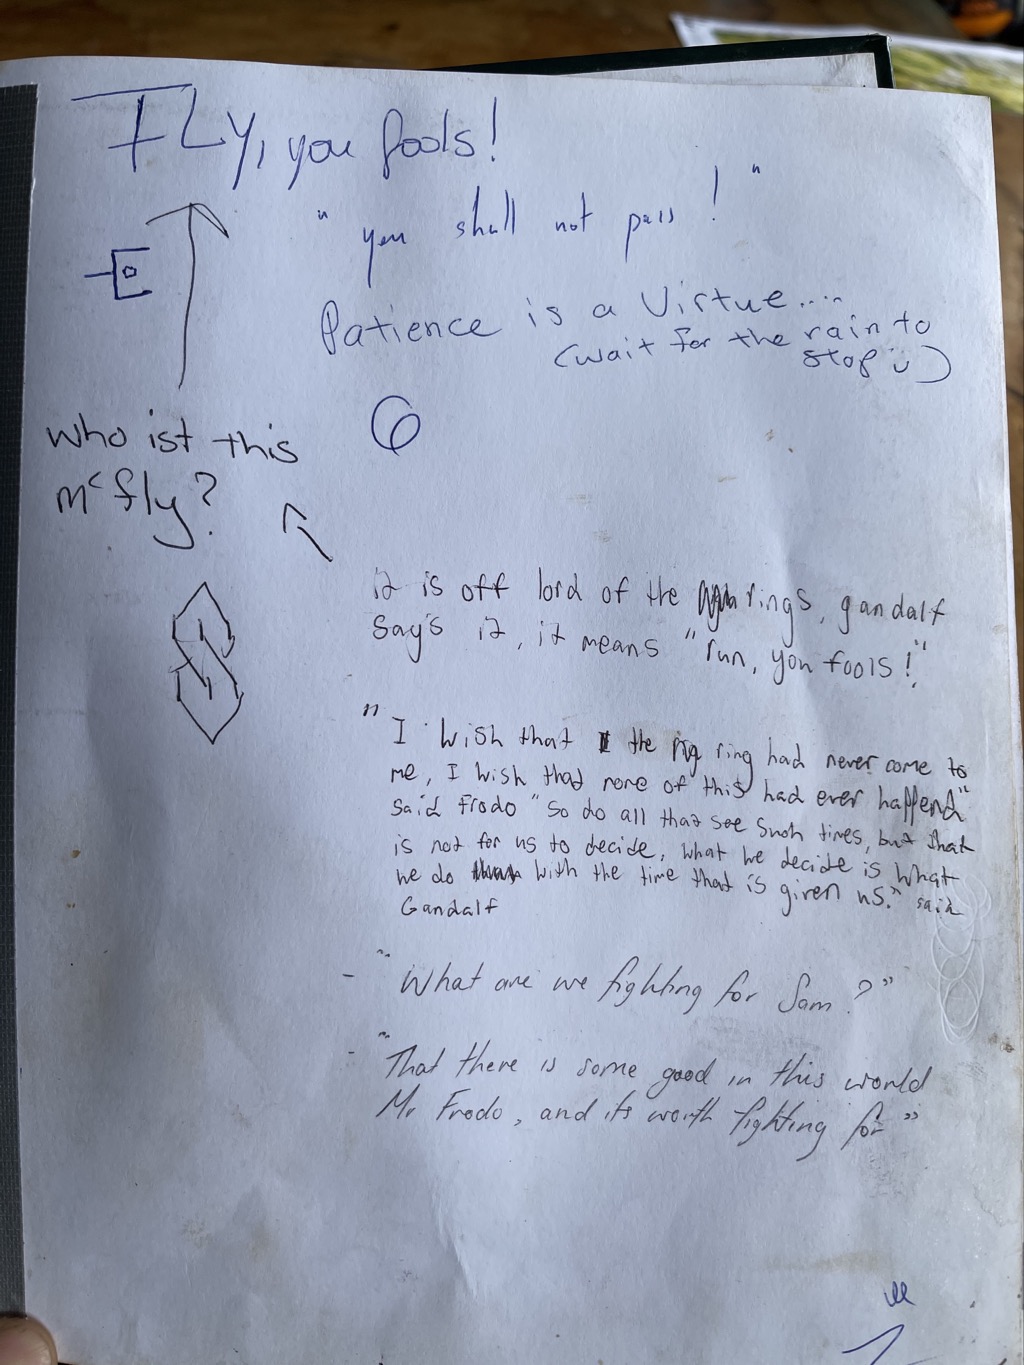 FLy, you fools!
"you shall not pass!"
Patience is a Virtue.....
(wait for the rain to
stop ü)
who ist this
mc fly?
it is off lord of the rings, gandalf
say's it, it means "run, you fools!"
"I wish that the ring had never come to
me, I wish that none of this had ever happend"
said Frodo "So do all that see such times, but that
is not for us to decide. What we decide is what
we do with the time that is given us." said
Gandalf
- "What are we fighting for Sam?"
- "That there is some good in this world
Mr Frodo, and its worth fighting for"